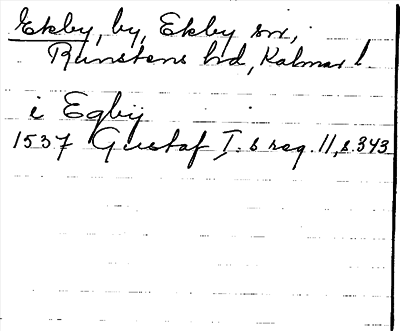 Ekby, by, Ekby sn,
Runstens hd, Kalmar l.
i Egbÿ
1537 Gustaf I:s reg. 11, s. 343